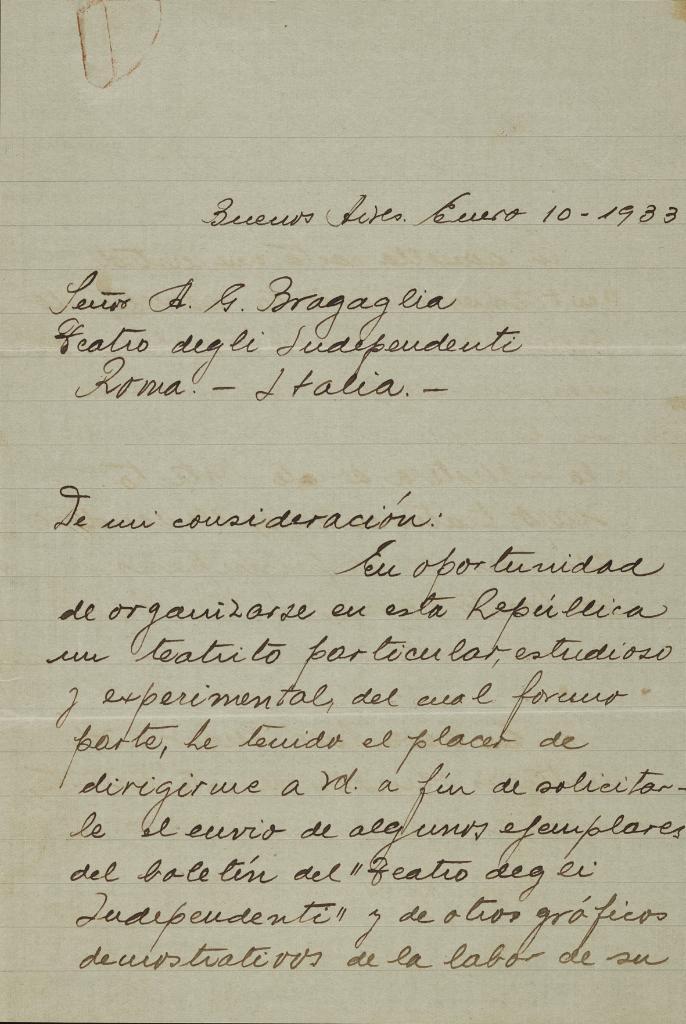 Buenos Aires. Enero 10-1933
Señor A. G. Bragaglia
Teatro degli Independenti
Roma. - Italia. -
De mi consideración:
En oportunidad
de organizarse en esta República
un teatrito particular, estudioso
y experimental, del cual formo
parte, he tenido el placer de
dirigirme a Vd. a fin de solicitar-
le el envio de algunos ejemplares
del boletín del "Teatro degli
Independenti" y de otros gráficos
demostrativos de la labor de su